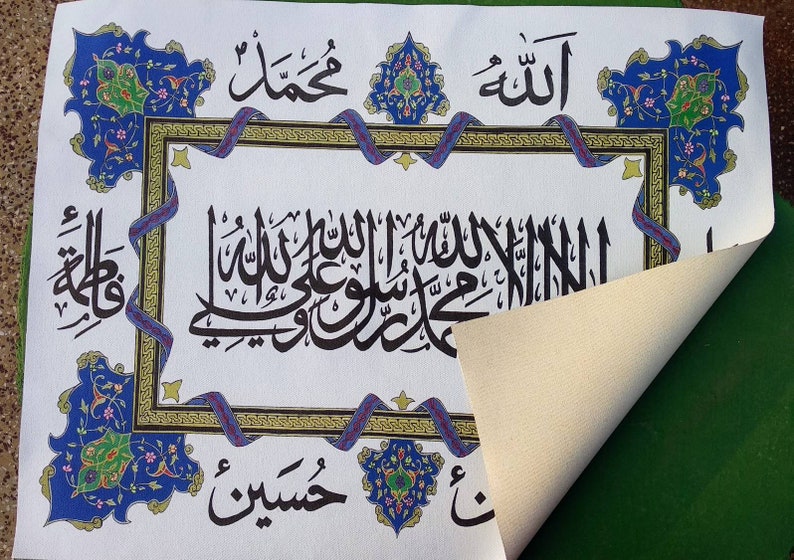 اَللّٰهُ مُحَمَّد
لا اله الا الله محمد رسول الله علي ولي الله
فَاطِمَة
حُسَين